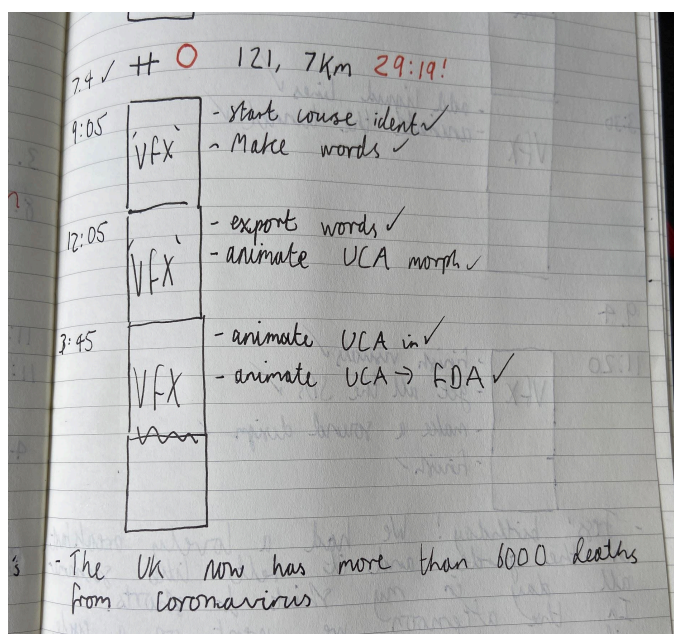 7.4 ✓ # O 121, 7km 29:19!
9:05 'VFX' - start course ident ✓
- Make words ✓
12:05 'VFX' - export words ✓
- animate UCA morph ✓
3:45 VFX - animate UCA in ✓
- animate UCA → FDA ✓
- The UK now has more than 6000 deaths
from coronavirus